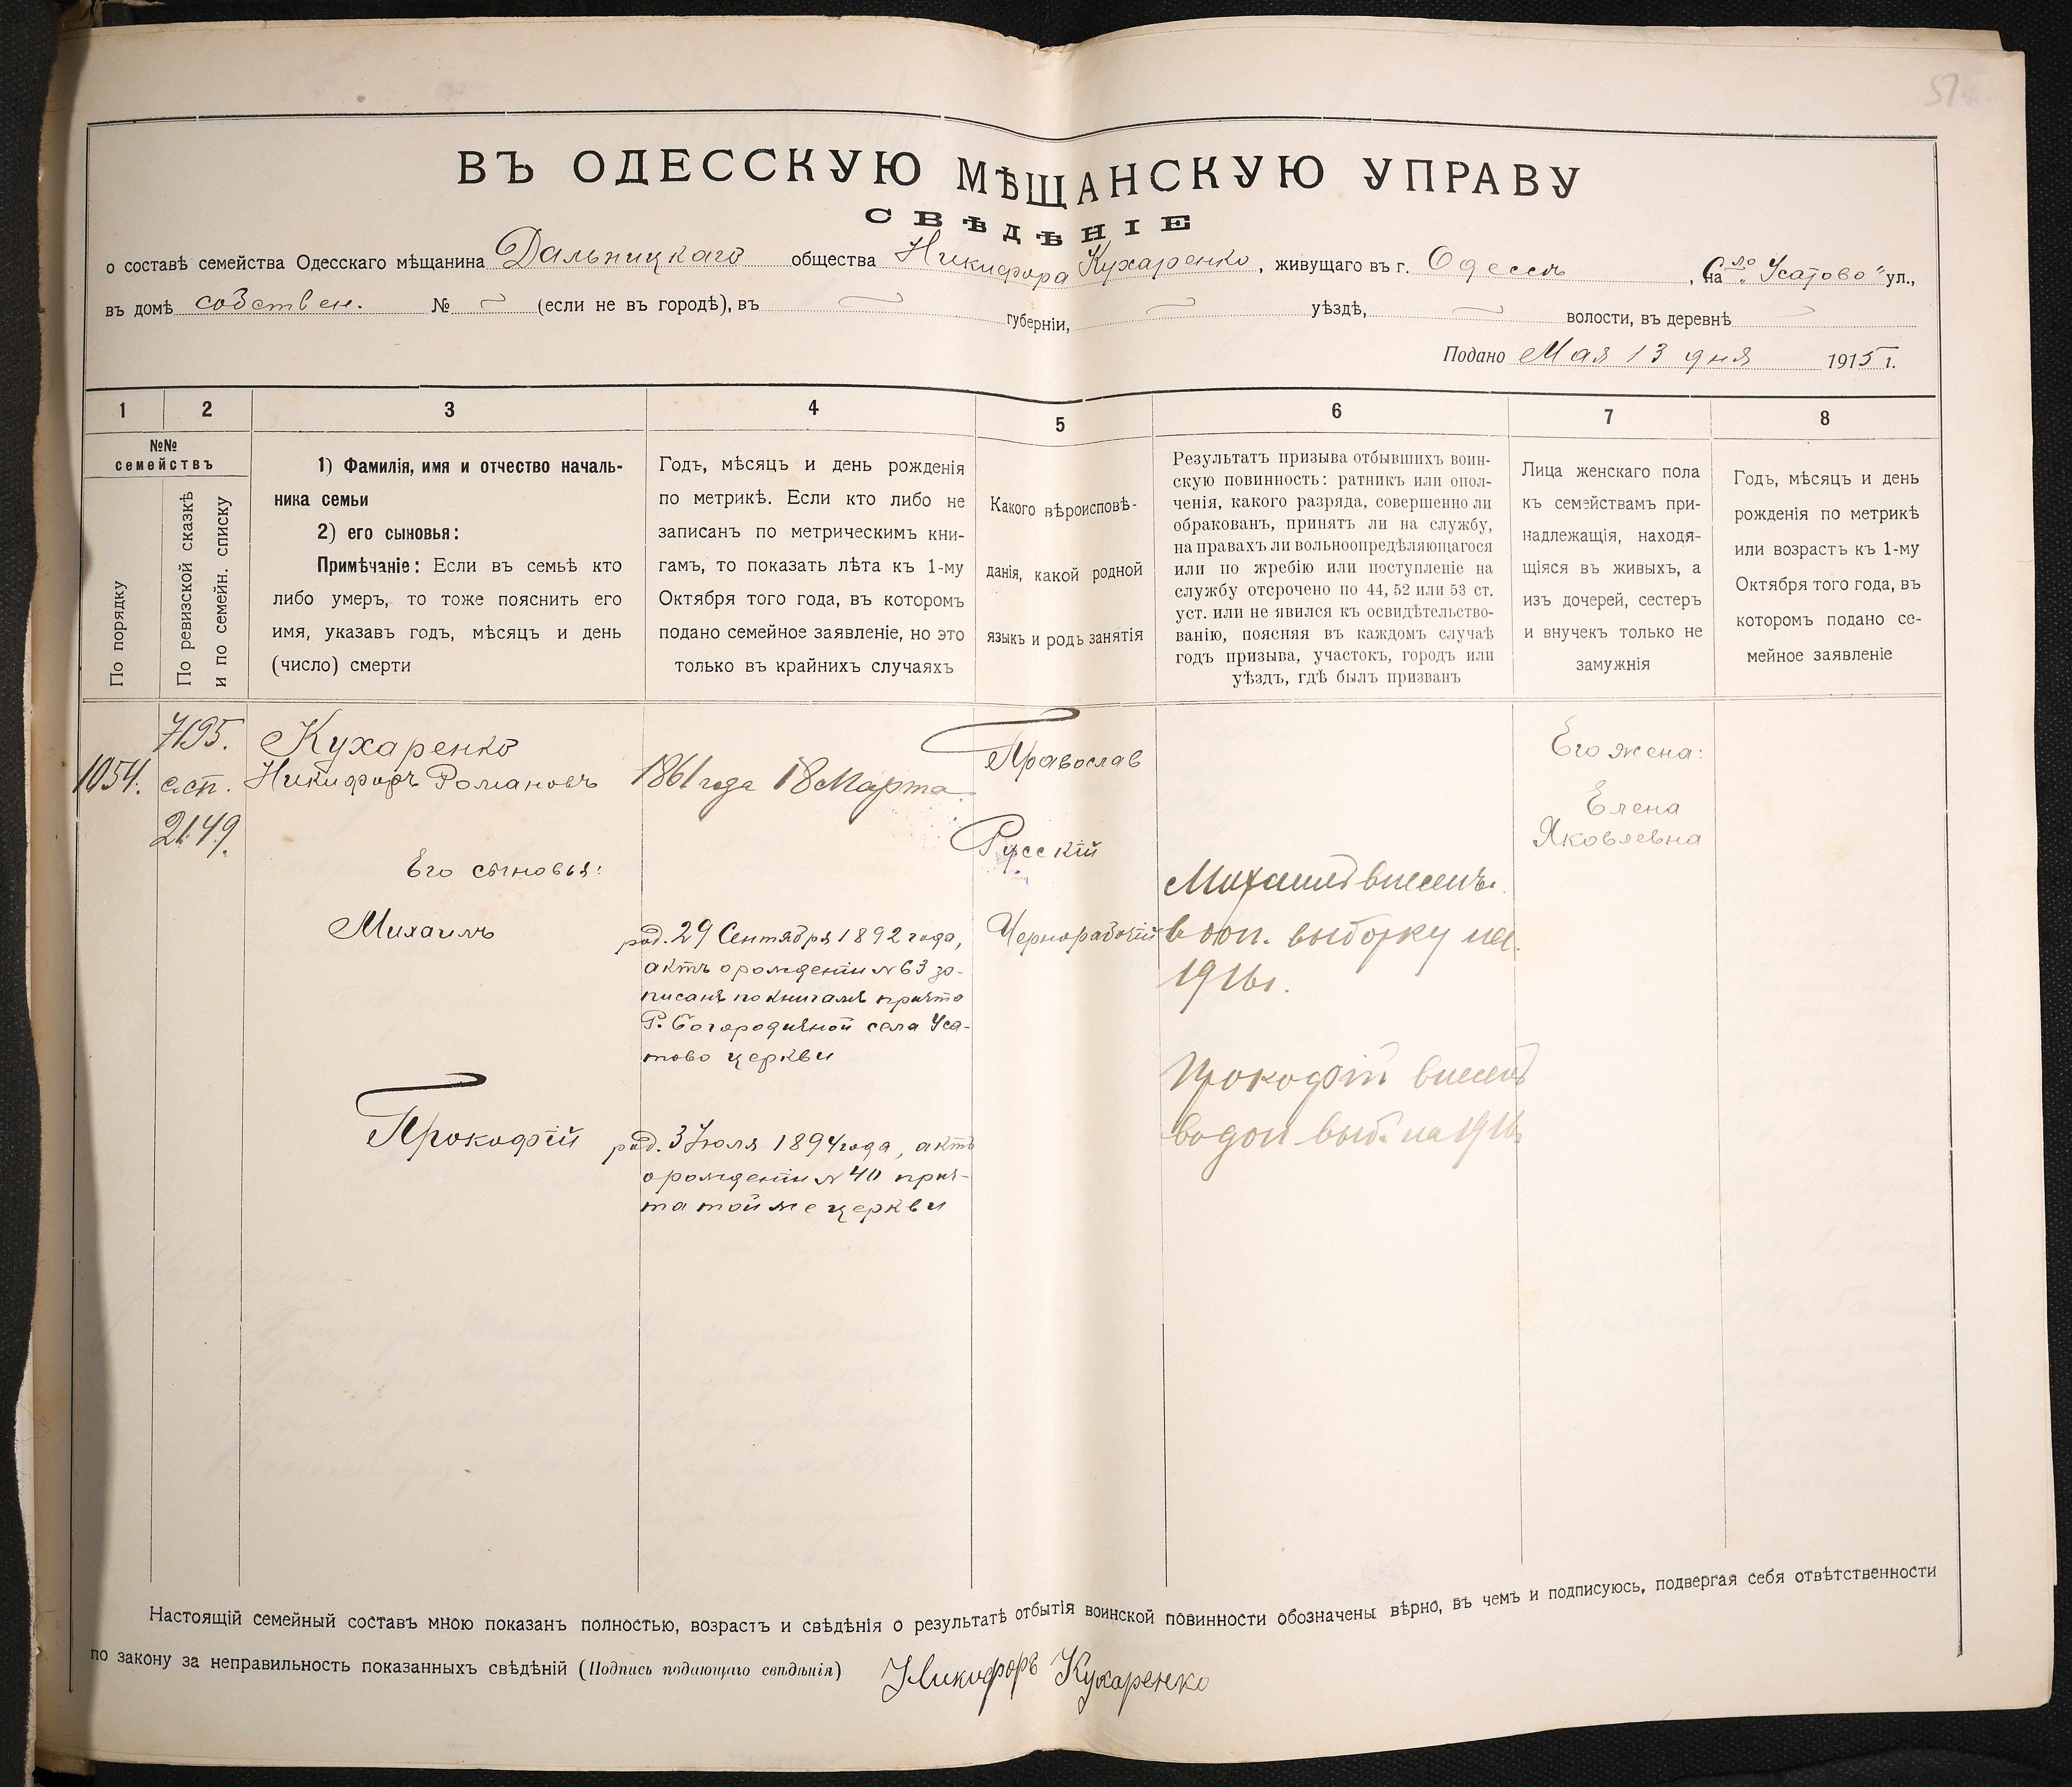 ВЪ ОДЕССКУЮ МѢЩАНСКУЮ УПРАВУ
СВѢДѢНІЕ
о составѣ семейства Одесскаго мѣщанина Дальницкаго общества Никифора Кухаренко, живущаго въ г. Одессѣ, на С-ло "Усатово" ул.,
въ домѣ собствен. № — (если не въ городѣ), въ — губерніи, — уѣздѣ, — волости, въ деревнѣ —
Подано Мая 13 дня 1915 г.
1 2 3 4 5 6 7 8
№№ семействъ
По порядку
По ревизской сказкѣ
и по семейн. списку
1) Фамилія, имя и отчество началь-
ника семьи
2) его сыновья:
Примѣчаніе: Если въ семьѣ кто
либо умеръ, то тоже пояснить его
имя, указавъ годъ, мѣсяцъ и день
(число) смерти
Годъ, мѣсяцъ и день рожденія
по метрикѣ. Если кто либо не
записанъ по метрическимъ кни-
гамъ, то показать лѣта къ 1-му
Октября того года, въ которомъ
подано семейное заявленіе, но это
только въ крайнихъ случаяхъ
Какого вѣроисповѣ-
данія, какой родной
языкъ и родъ занятія
Результатъ призыва отбывшихъ воин-
скую повинность: ратникъ или опол-
ченія, какого разряда, совершенно ли
обракованъ, принятъ ли на службу,
на правахъ ли вольноопредѣляющагося
или по жребію или поступленіе на
службу отсрочено по 44, 52 или 53 ст.
уст. или не явился къ освидѣтельство-
ванію, поясняя въ каждомъ случаѣ
годъ призыва, участокъ, городъ или
уѣздъ, гдѣ былъ призванъ
Лица женскаго пола
къ семействамъ при-
надлежащія, находя-
щіяся въ живыхъ, а
изъ дочерей, сестеръ
и внучекъ только не
замужнія
Годъ, мѣсяцъ и день
рожденія по метрикѣ
или возрастъ къ 1-му
Октября того года, въ
которомъ подано се-
мейное заявленіе
1054.
7195.
с.сп.
2149.
Кухаренко
Никифоръ Романовъ
1861 года 18 Марта
Православ
Русскій
Его жена:
Елена
Яковлевна
Его сыновья:
Михаилъ
род. 29 Сентября 1892 года,
актъ о рожденіи № 63 за-
писанъ по книгамъ причта
Р. Богородичной села Уса-
тово церкви
Чернорабочій
Михаилъ внесенъ
в доп. выборку на
1916 г.
Прокофій
род. 3 Іюля 1894 года, актъ
о рожденіи № 40 прич-
та той же церкви
Прокофій внесенъ
в доп выб. на 1916
Настоящій семейный составъ мною показанъ полностью, возрастъ и свѣдѣнія о результатѣ отбытія воинской повинности обозначены вѣрно, въ чемъ и подписуюсь, подвергая себя отвѣтственности
по закону за неправильность показанныхъ свѣдѣній (Подпись подающаго свѣдѣнія) Никифоръ Кухаренко